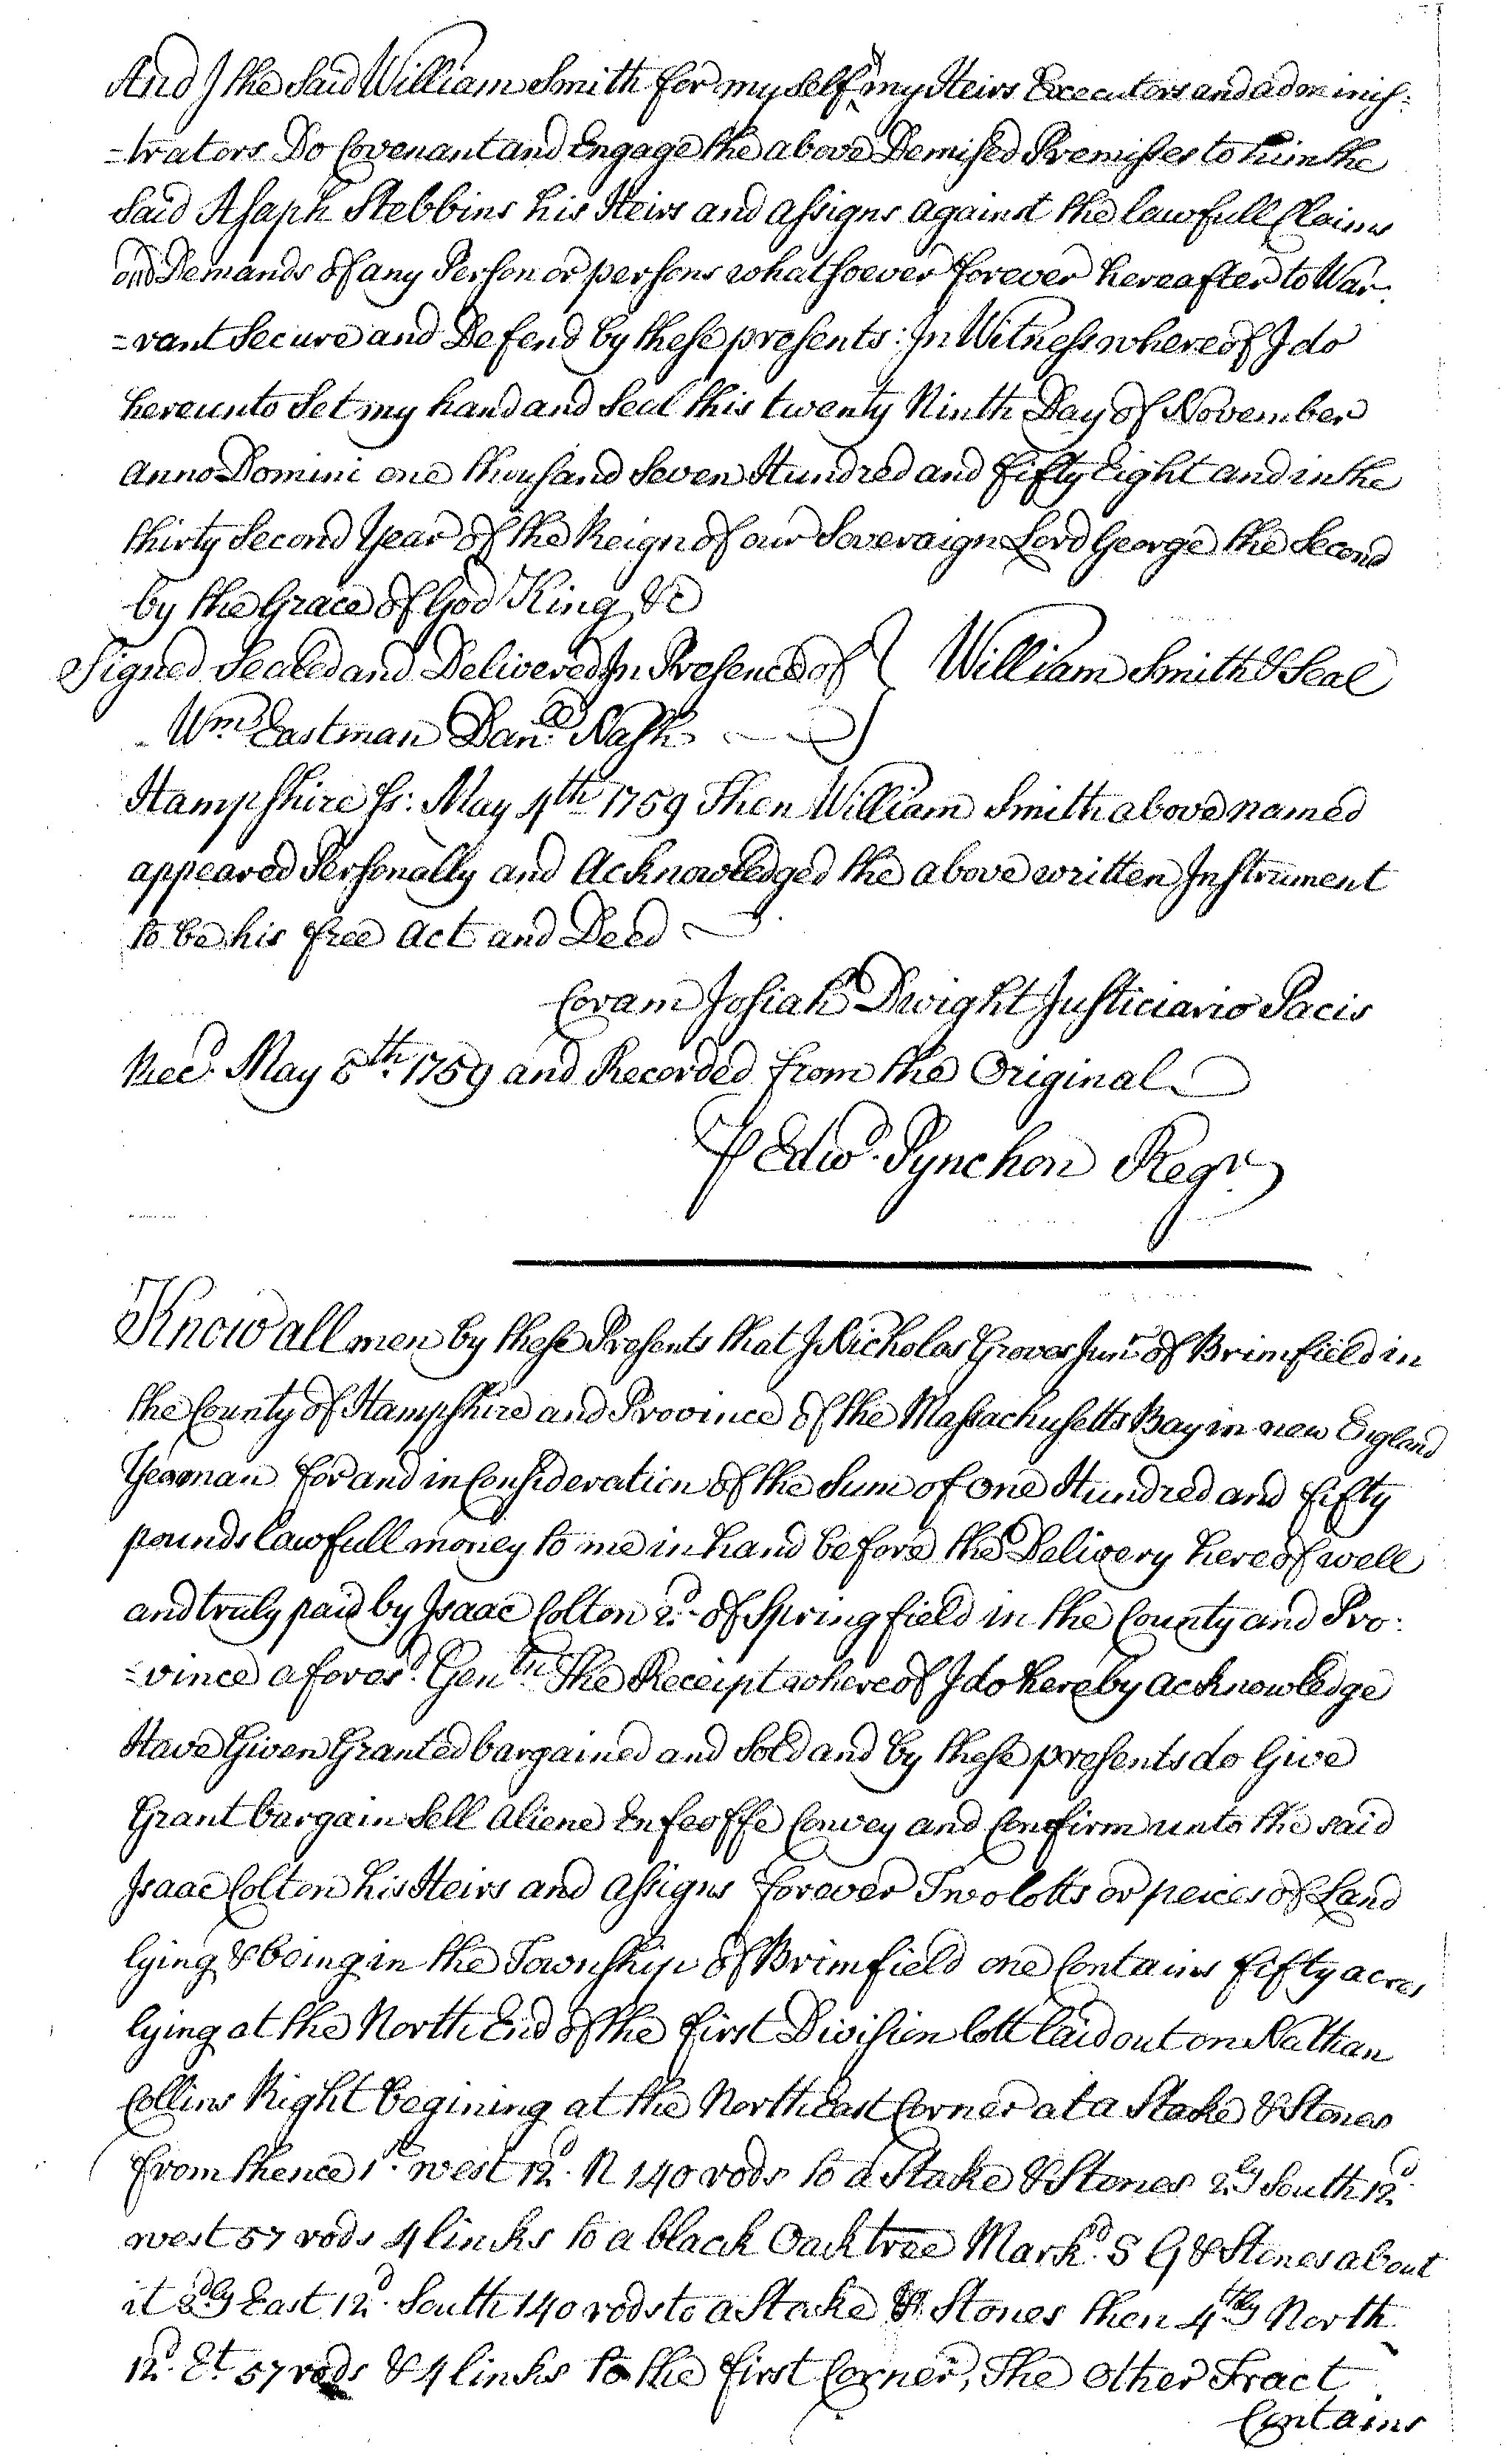 And I the Said William Smith for my self & my Heirs Executors and adminis=
=trators Do Covenant and Engage the above Demised Premisses to him the
Said Asaph Stebbins his Heirs and assigns against the lawfull Claims
and Demands of any Person or persons whatsoever forever hereafter to War=
=rant Secure and Defend by these presents: In Witness whereof I do
hereunto Set my hand and Seal this twenty Ninth Day of November
Anno Domini one thousand Seven Hundred and fifty Eight and in the
thirty Second Year of the Reign of our Soveraign Lord George the Second
by the Grace of God King &c
Signed Sealed and Delivered In Presence of } William Smith & Seal
Wm Eastman Danll Nash
Hampshire Ss: May 4th 1759 Then William Smith above named
appeared Personally and Acknowledged the above written Instrument
to be his free Act and Deed
Coram Josiah Dwight Justiciario Pacis
Recd. May 8th. 1759 and Recorded from the Original
P Edwd. Pynchon Regr
Know all men by these Presents that I Nicholas Groves Junr of Brimfield in
the County of Hampshire and Province of the Massachusetts Bay in new England
Yeoman for and in Consideration of the Sum of One Hundred and fifty
pounds lawfull money to me in hand before the Delivery hereof well
and truly paid by Isaac Colton 2d. of Springfield in the County and Pro=
=vince afores.d Gentn The Receipt whereof I do hereby acknowledge
Have Given Granted bargained and Sold and by these presents do Give
Grant bargain Sell aliene Enfeoffe Convey and Confirm unto the said
Isaac Colton his Heirs and assigns forever Two lotts or peices of Land
lying & being in the Township of Brimfield one Contains fifty acres
lying at the North End of the first Division lott laid out on Nathan
Collins Right begining at the North East Corner at a Stake & Stones
from thence 1st. west 12d. N 140 rods to a Stake & Stones 2dly South 12d.
west 57 rods 4 links to a black Oack tree Markd. S G & Stones about
it 3dly East 12d. South 140 rods to a Stake & Stones then 4thly North
12d. Et 57 rods & 4 links to the first Corner, The Other Tract
Contains